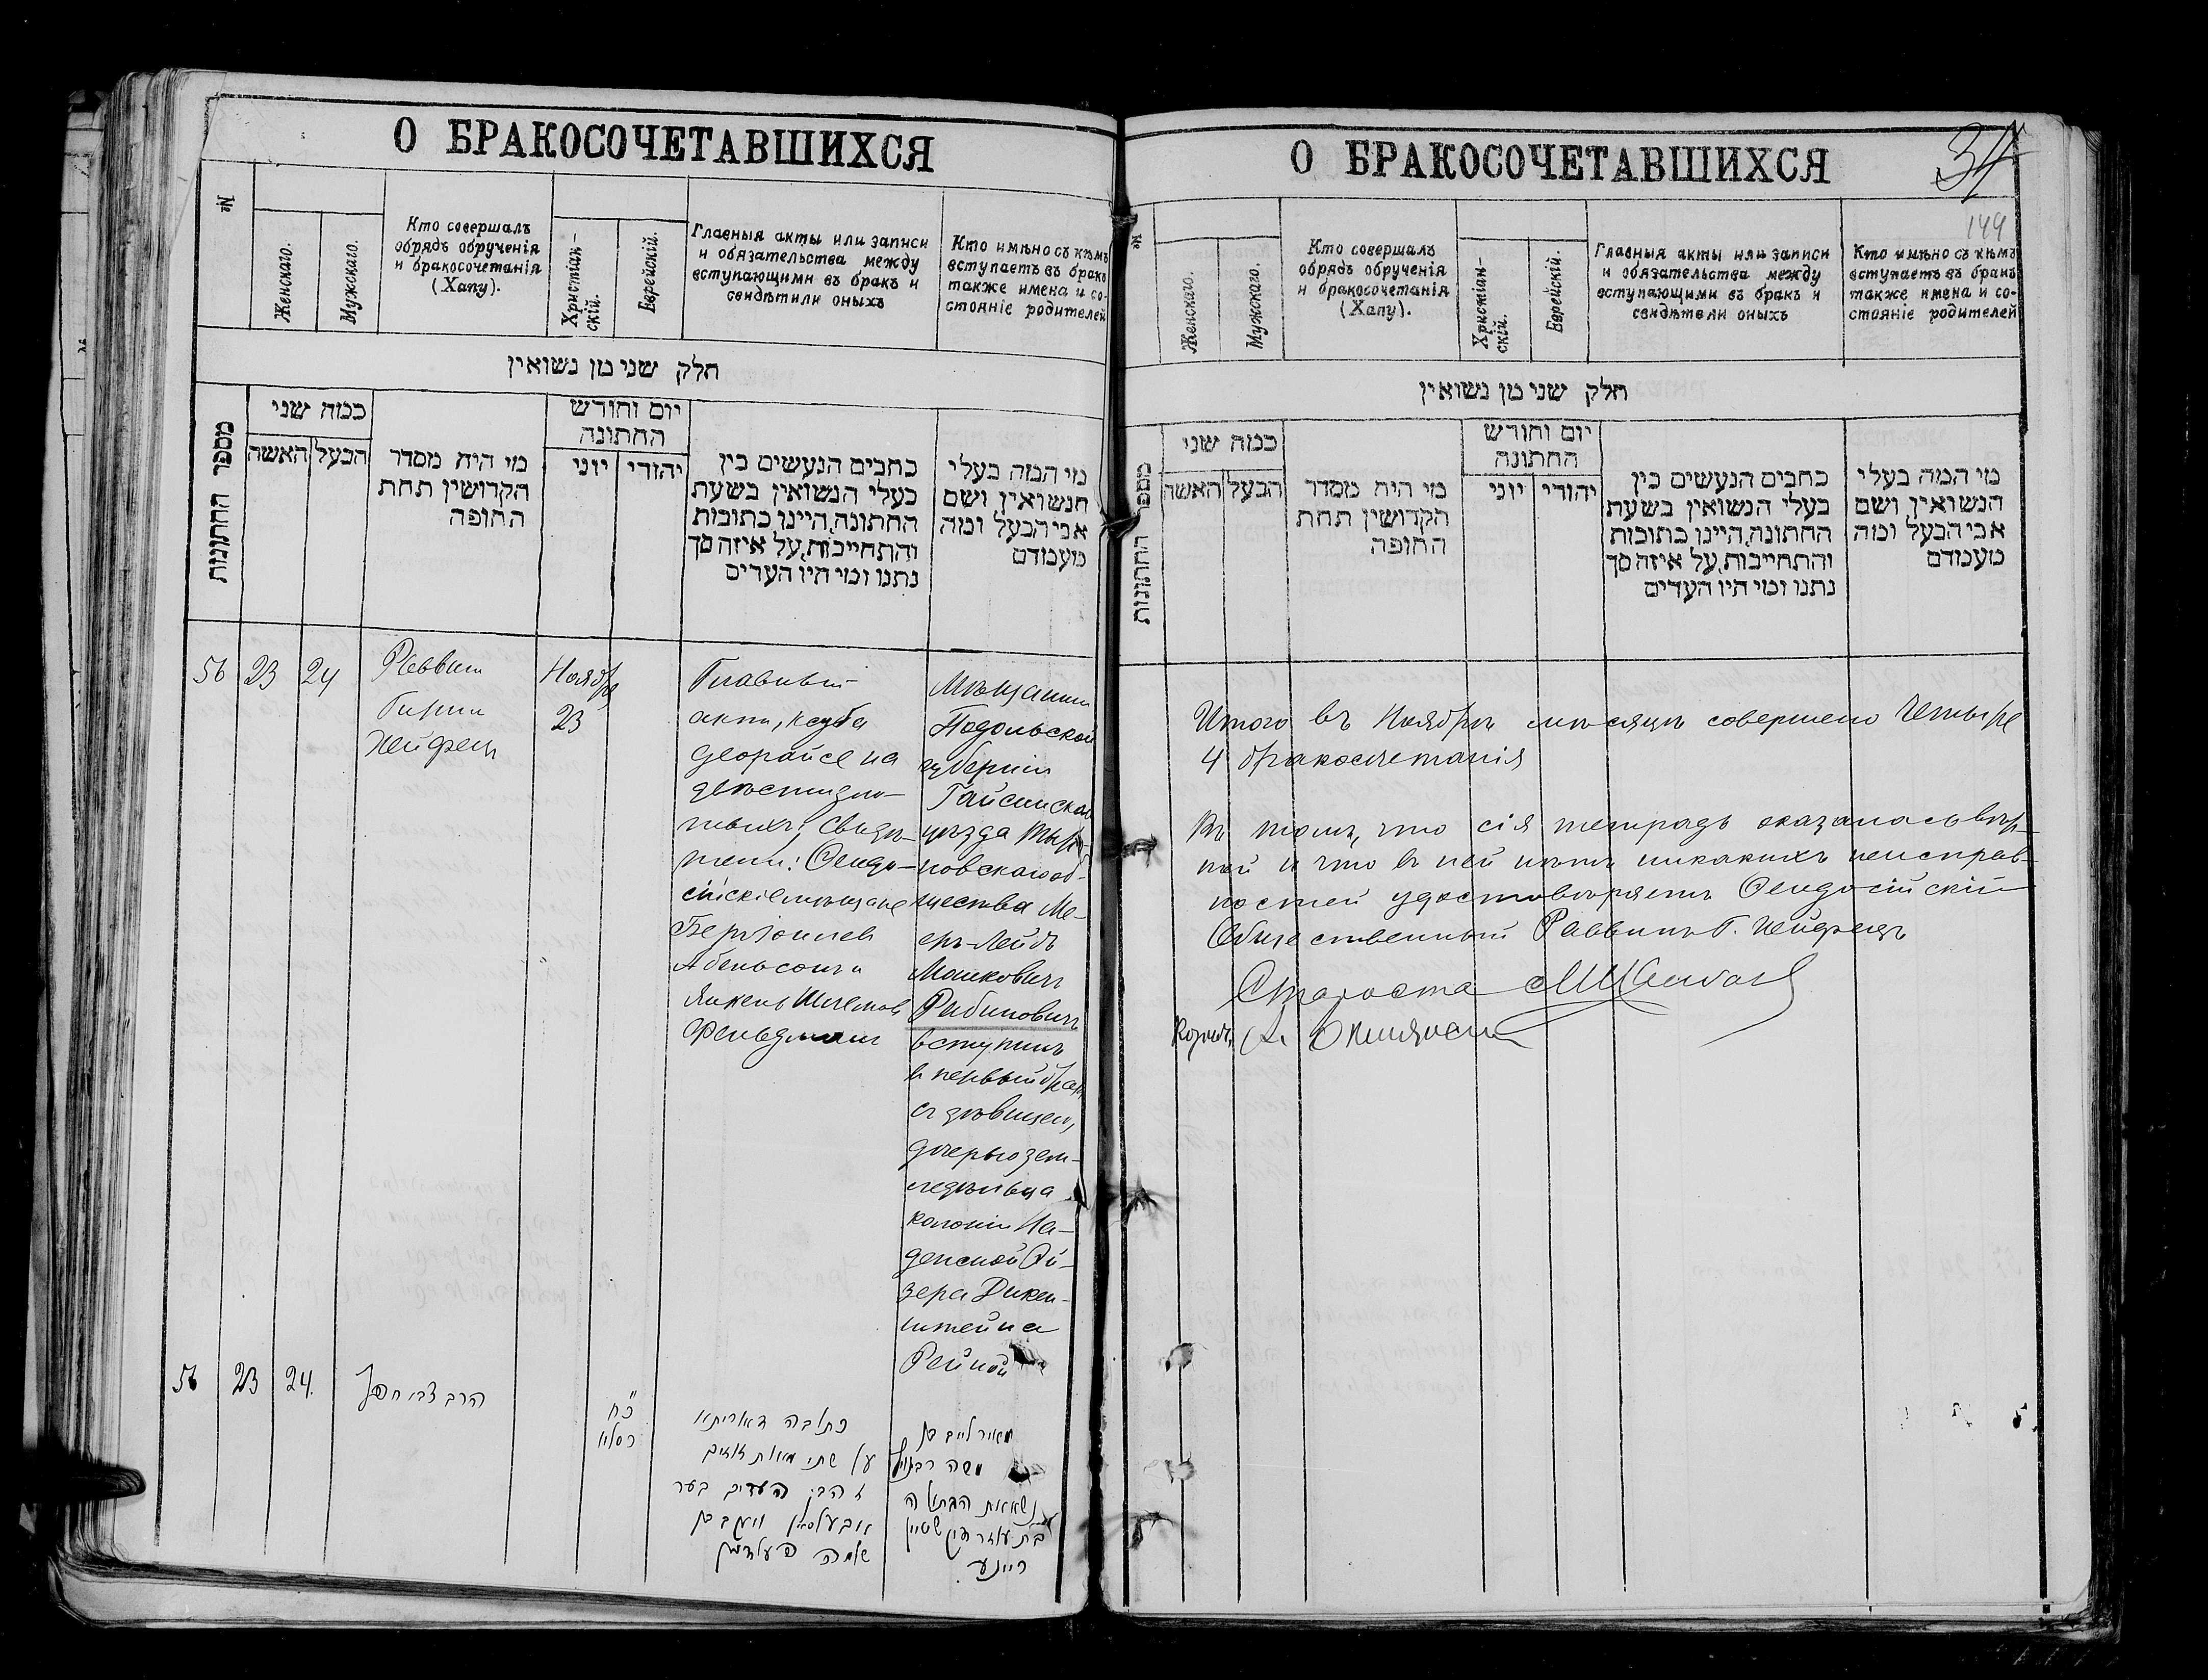 О БРАКОСОЧЕТАВШИХСЯ
№
Женскаго.
Мужскаго.
Кто совершалъ
обрядъ обрученія
и бракосочетанія
(Хапу).
Христіан-
скій.
Еврейскій.
Главныя акты или записи
и обязательства между
вступающими въ бракъ и
свидѣтили оныхъ
Кто имѣно съ кѣмъ
вступаетъ въ бракъ
также имена и со-
стояніе родителей
חלק שני מן נשואין
מספר החתונות
כמה שני
האשה הבעל
מי היה מסדר
הקדושין תחת
החופה
יום וחודש
החתונה
יוני יהודי
כתבים הנעשים בין
בעלי הנשואין בשעת
החתונה, היינו כתובות
והתחייבות, על איזה סך
נתנו ומי היו העדים
מי המה בעלי
הנשואין, ושם
אבי הבעל ומה
מעמדם
56 23 24
Раввин
Гирш
Хейфец
Ноября
23
Главный
актъ, ксуба
деорайсе на
двѣсти зло-
тыхъ; Свидѣ-
тели: Ѳеодо-
сійскіе мѣщане
Абельсонъ и
Фельдман
Мѣщанин
Подольской
губерніи
Гайсинскаго
уѣзда
новскаго об-
щества Ме-
еръ-Лейбъ
Мошкович
Рабинович
вступилъ
в первый брак
съ дѣвицею,
дочерью зем-
ледѣльца
колоніи На-
деисной Эй-
зера Дикен-
штейна
Рейной
56 23 24.
הרב צבי חפץ
כח
כסליו
כתובה דאריתא
על שתי מאות זוזים
זהבו העדים בער
אבעלסאן ויעקב בן
שלמה פעלדמן
מאיר לייב בן
משה רבנוויץ
נשא את הבתולה
בת עוזר דיקשטיין
ריינע.
О БРАКОСОЧЕТАВШИХСЯ
34
149
№
Женскаго.
Мужскаго.
Кто совершалъ
обрядъ обрученія
и бракосочетанія
(Хапу).
Христіан-
скій.
Еврейскій.
Главныя акты или записи
и обязательства между
вступающими въ бракъ и
свидѣтели оныхъ
Кто имѣно съ кѣмъ
вступаетъ въ бракъ
также имена и со-
стояніе родителей
חלק שני מן נשואין
מספר החתונות
כמה שני
האשה הבעל
מי היה מסדר
הקדושין תחת
החופה
יום וחודש
החתונה
יוני יהודי
כתבים הנעשים בין
בעלי הנשואין בשעת
החתונה, היינו כתובות
והתחייבות, על איזה סך
נתנו ומי היו העדים
מי המה בעלי
הנשואין, ושם
אבי הבעל ומה
מעמדם
Итого въ Ноябрѣ мѣсяцѣ совершено четыре
4 бракосочетанія
Въ томъ, что сія тетрадь оказалась вѣр-
ной и что в ней нѣтъ никакихъ неисправ-
ностей удостовѣряетъ Ѳеодосійскій
Общественный Раввинъ Г. Хейфецъ
Староста